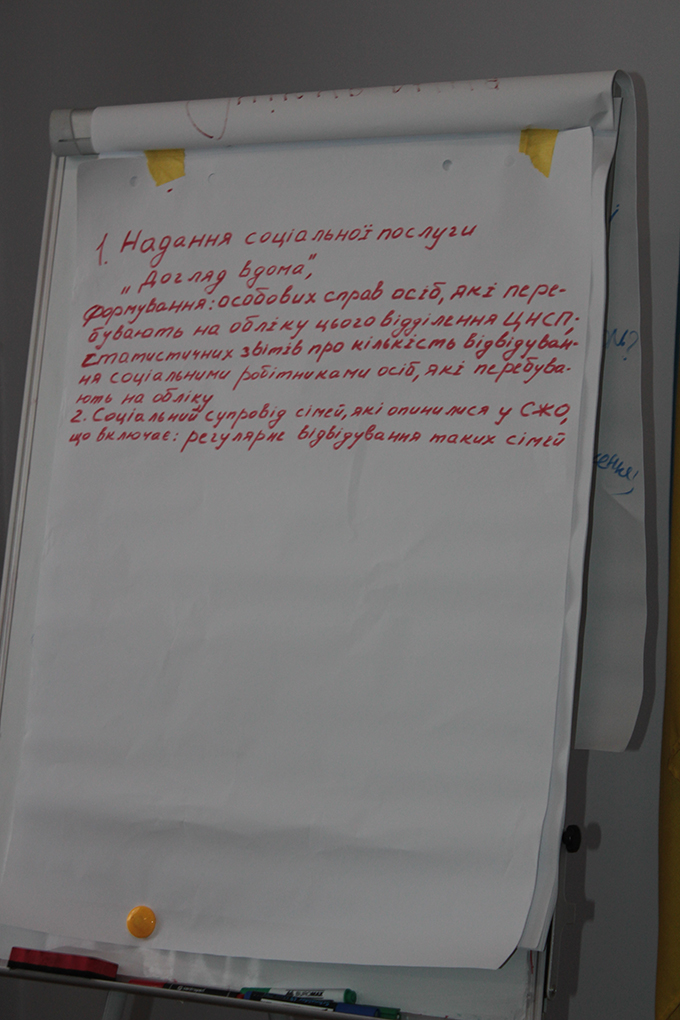 1. Надання соціальної послуги
„Догляд вдома",
формування: особових справ осіб, які пере-
бувають на обліку цього відділення ЦНСП;
статистичних звітів про кількість відвідуван-
ня соціальними робітниками осіб, які перебува-
ють на обліку
2. Соціальний супровід сімей, які опинилися у СЖО,
що включає: регулярне відвідування таких сімей